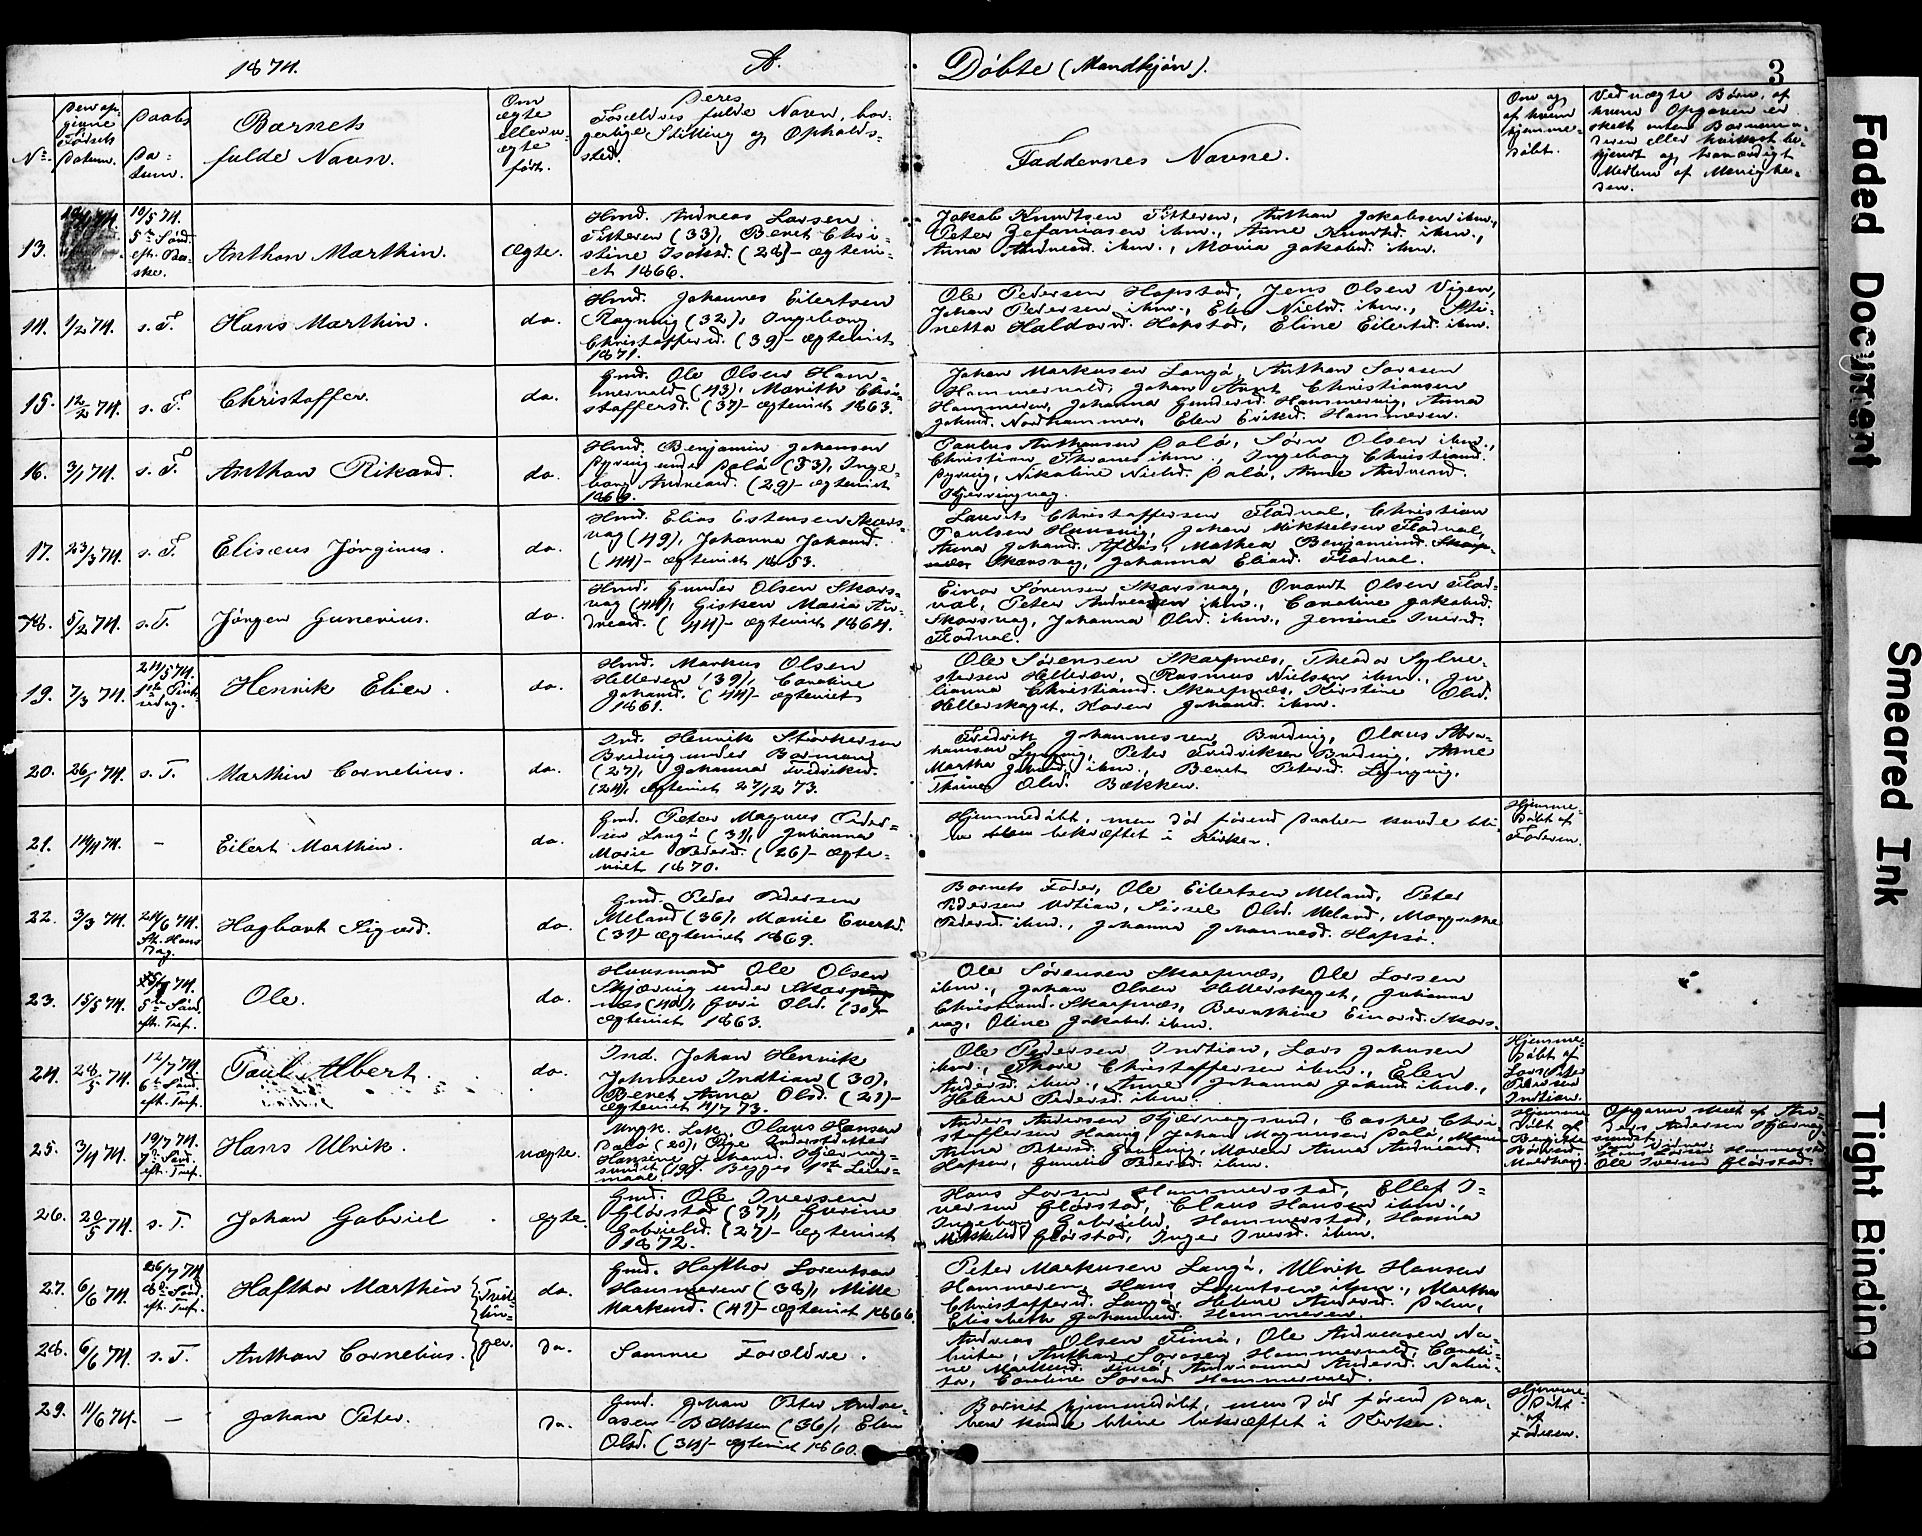 1874.
A.
Døbte (Mandkjøn).
3
No.
Den opgivne Fødsels Datum.
Daabs Datum.
Barnets fulde Navn.
Om ægte eller uægte født.
Deres Forældres fulde Navn, borgerlige Stilling og Opholdssted.
Faddernes Navne.
Om og af hvem hjemmedøbt.
Ved uægte Børn, af hvem Opgaven er skett
13.
10/5 74.
5te Sønd. eft. Paaske.
Anthon Marthin.
Ægte.
Hmd. Andreas Larsen
Fitteren (33), Beret Christine Isaksd. (28) - ægteviet 1866.
Jakob Knudtsen Fitteren, Anthon Jakobsen ibm.,
Peter Zefaniasen ibm., Anne Knudtsd. ibm.,
Anna Andreasd. ibm., Maria Jakobsd. ibm.
14.
1/2 74.
s. T.
Hans Marthin.
do.
Hmd. Johannes Eilertsen
Ragnvig (32), Ingeborg
Christoffersd. (39) - ægteviet
1871.
Ole Pedersen Hopstad, Jens Olsen Vigen,
Johan Pedersen ibm., Elen Nielsd. ibm.,
Haldorsd. Hopstad, Eline Eilertsd. ibm.
15.
12/2 74.
s. T.
Christoffer.
do.
Gmd. Ole Olsen Hammervold (43), Marith Christoffersd. (37) - ægteviet 1863.
Johan Markusen Langø, Anthon
Hammervold, Johan Arnt Christiansen
Hammeren, Johanna Gundersd. Hammervig, Anna
Johnsd. Nordhammer, Elen Eriksd. Hammeren.
16.
3/1 74.
s. T.
Anthon Rikard.
do.
Hmd. Benjamin Johansen
Dyrvig under Dolø (33), Ingeborg Andreasd. (29) - ægteviet
1869.
Paulus Anthonsen Dolø, Sørn Olsen ibm.,
Christian ibm., Ingeborg Christiansd.
Dyrvig, Nikoline Nielsd. Dolø, Anne Andreasd.
17.
23/3 74.
s. T.
Elisæus Jørginus.
do.
Hmd. Elias Estensen Skarsvag (49), Johanna Johansd.
(44) - ægteviet 1853.
Laurits Christoffersen Fladval, Christian
Paulsen Johan Mikkelsen Fladval,
Anna Johansd. Mathea Benjaminsd.
Skarsvag, Johanna Eliasd. Fladval.
18.
5/2 74.
s. T.
Jørgen Gunerius.
do.
Hmd. Gunder Olsen Skarsvag (44), Gisken Maria Andreasd. (44) - ægteviet 1864.
Einar Sørensen Skarsvag, Olsen Fladval, Peter Andreasen ibm., Caroline Jakobsd.
Skarsvag, Johanna Olsd. ibm., Jensine Iversd.
Fladval.
19.
7/3 74.
24/5 74.
1ste Pintsedag.
Henrik Elier.
do.
Hmd. Markus Olsen
Helleren (39), Caroline
Johansd. (44) - ægteviet
1861.
Ole Sørensen Skarpnæs, Theodor Sylvestersen Helleren, Rasmus Nielsen ibm., Julianna Christiansd. Skarpnæs, Kirstine Olsd.
Hellerskaget, Karen Johansd. ibm.
20.
26/1 74.
s. T.
Marthin Cornelius.
do.
Ind. Henrik Størkersen
Bredvig under
(27), Johanna Fredriksd.
(24), ægteviet 27/12 73.
Fredrik Johannessen Bredvig, Olaus Abrahamsen Lyngvig, Peter Fredriksen Bredvig, Anne
Martha Johnsd. ibm., Beret Petersd. Lyngvig,
Olsd. Bækken.
21.
14/4 74.
-
Eilert Marthin.
do.
Gmd. Peter Magnus Pedersen Langø (31), Julianna
Marie Pedersd. (26) - ægteviet 1870.
Hjemmedøbt, men død førend Daaben kunde blive bekræftet i Kirken.
Hjemmedøbt af Faderen.
22.
3/3 74.
24/6 74.
St. Hans Dag.
Hagbart Sigvard.
do.
Gmd. Peder Pedersen
Meland (36), Marie Evertsd.
(31) - ægteviet 1869.
Barnets Fader, Ole Eilertsen Meland, Peter
Pedersen Sissel Olsd. Meland, Margrethe
Pedersd. ibm., Johanna Johannesd. Hopsø.
23.
15/5 74.
5te Sønd. eft. Tref.
Ole.
do.
Huusmand Ole Olsen
Skjærvig under Skarpnæs (40), Guri Olsd. (30) -
ægteviet 1863.
Ole Sørensen Skarpnæs, Ole Larsen
ibm., Johan Olsen Hellerskaget, Julianna
Christiansd. Skarpnæs, Berntine Einarsd. Skarsvag, Oline Jakobsd. ibm.
24.
28/5 74.
12/7 74.
6te Sønd. eft. Tref.
Paul Albert.
do.
Ind. Johan Henrik
Johnsen Indtian (30),
Beret Anna Olsd. (21) -
ægteviet 4/7 73.
Ole Pedersen Indtian, Lars Johnsen
ibm., Thore Christoffersen ibm., Elen
Andersd. ibm., Anne Johanna Johnsd. ibm.,
Helena Pedersd. ibm.
Hjemmedøbt af Lars Peter Petersen Indtian.
25.
3/4 74.
19/7 74.
7de Sønd. eft. Tref.
Hans Ulrik.
uægte.
Ungk. Olaus Hansen
Dolø (20), Pige
Hansine Johansd. Hjærnøgsundet (19). Begges 1ste Leiermaal.
Anders Andersen Hjærnøgsund, Casper Christoffersen Johan Magnusen Dolø,
Anna Petersd. Maren Anna Andreasd.
Hopsen, Pedersd. ibm.
Opgaven skett af Anders Andersen
Ole Iversen Glørstad.
26.
20/5 74.
s. T.
Johan Gabriel
Ægte.
Gmd. Ole Iversen
Glørstad (37), Gurine
Gabrielsd. (27) - ægteviet
1872.
Hans Larsen Hammerstad, Ellef Iversen Glørstad, Claus Hansen ibm.,
Ingeborg Gabrielsd. Hammerstad, Hanna
Glørstad, Inger Iversd. ibm.
27.
6/6 74.
26/7 74.
8de Sønd. eft. Tref.
Hafthor Marthin
Tvillinger.
do.
Gmd. Hafthor Lorentsen
Hammeren (38), Mille
Markusd. (41) - ægteviet 1866.
Peter Markusen Langø, Ulrik Hansen
Hammeren, Hans Lorentsen ibm., Martha
Christoffersd. Langø, Helene Andersd.
Elisabeth Johannesd. Hammeren.
28.
6/6 74.
s. T.
Anthon Cornelius.
do.
Samme Forældre.
Andreas Olsen Timø, Ole Andreasen
Anthon Hammervold, Caroline Markusd. Timø, Andrianna Andersd.
Caroline Hammervold.
29.
11/6 74.
-
Johan Peter.
do.
Gmd. Johan Peter Andreasen Bækken (36), Elen
Olsd. (34) - ægteviet 1860.
Barnet hjemmedøbt, men død førend Daaben kunde blive bekræftet i Kirken.
Hjemmedøbt af Faderen.
Faded Document
Smeared Ink
Tight Binding